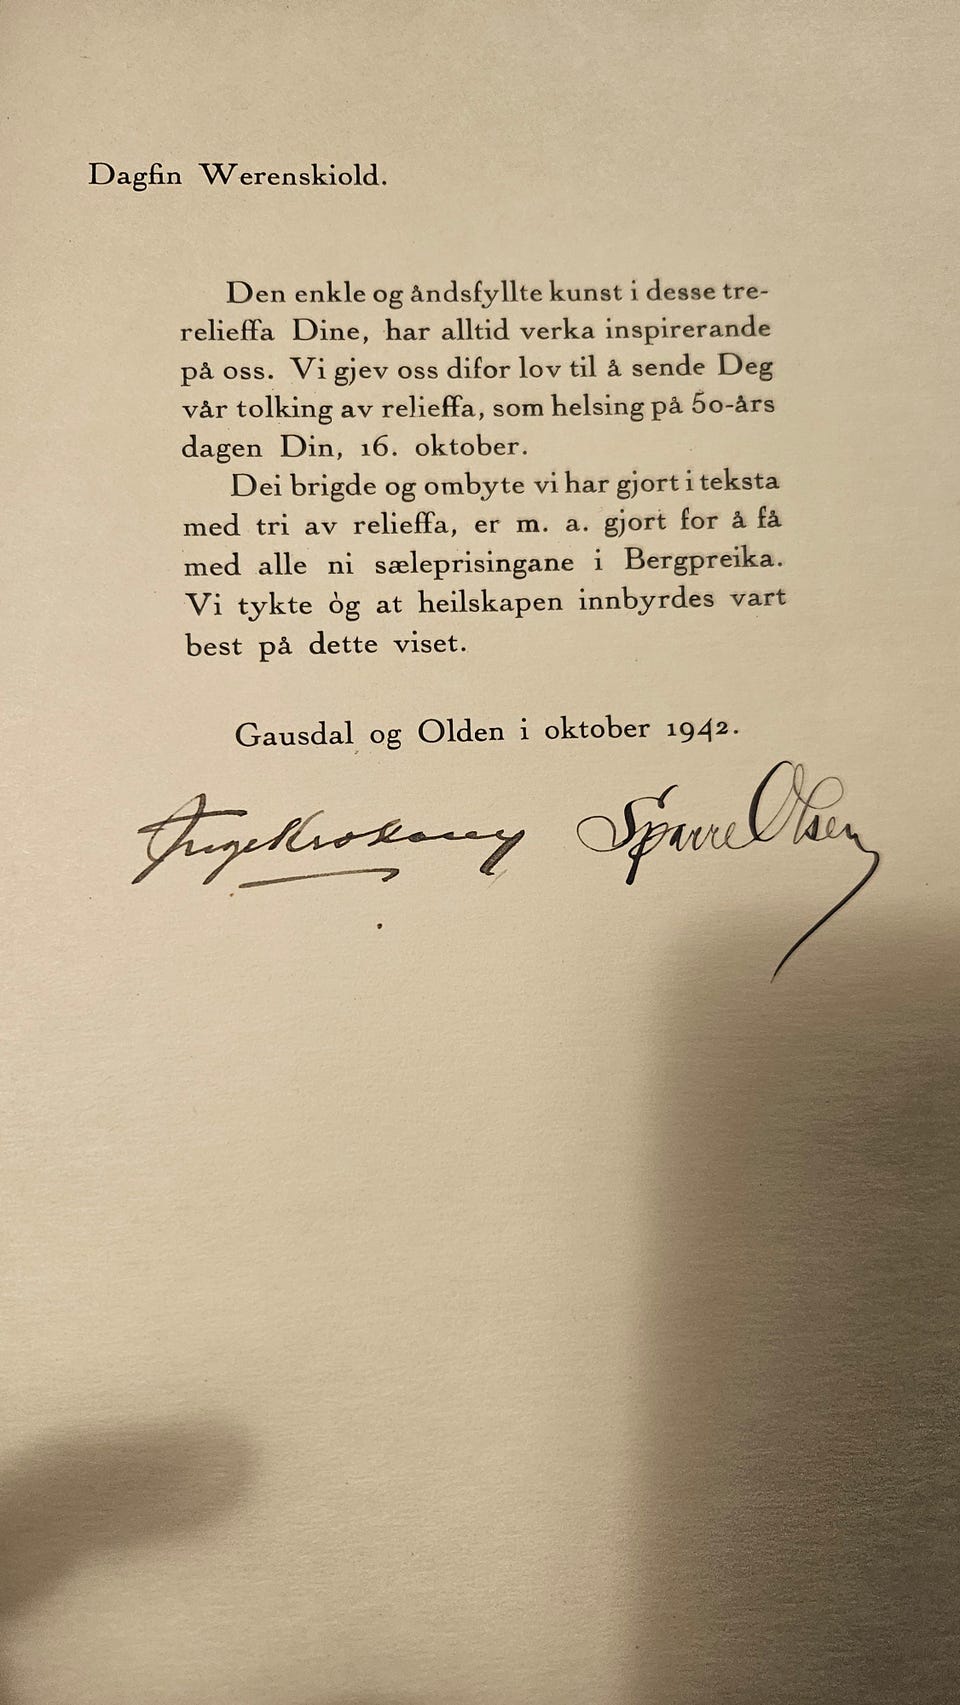 Dagfin Werenskiold.
Den enkle og åndsfyllte kunst i desse tre-
relieffa Dine, har alltid verka inspirerande
på oss. Vi gjev oss difor lov til å sende Deg
vår tolking av relieffa, som helsing på 50-års
dagen Din, 16. oktober.
Dei brigde og ombyte vi har gjort i teksta
med tri av relieffa, er m. a. gjort for å få
med alle ni sæleprisingane i Bergpreika.
Vi tykte òg at heilskapen innbyrdes vart
best på dette viset.
Gausdal og Olden i oktober 1942.
Inge Krokann Sparre Olsen